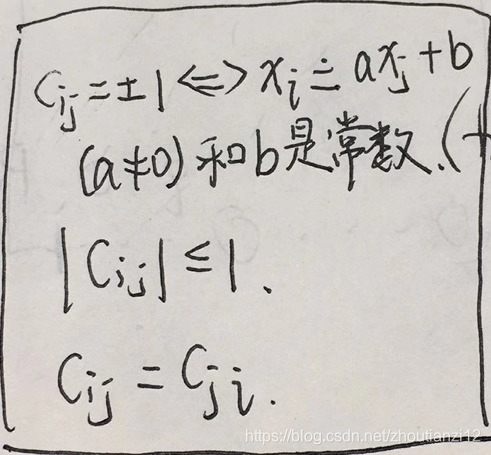 Cij=±1⇔xi≐axj+b
(a≠0)和b是常数.(
|Cij|≤1.
Cij=Cji.
https://blog.csdn.net/zhoutianzi12